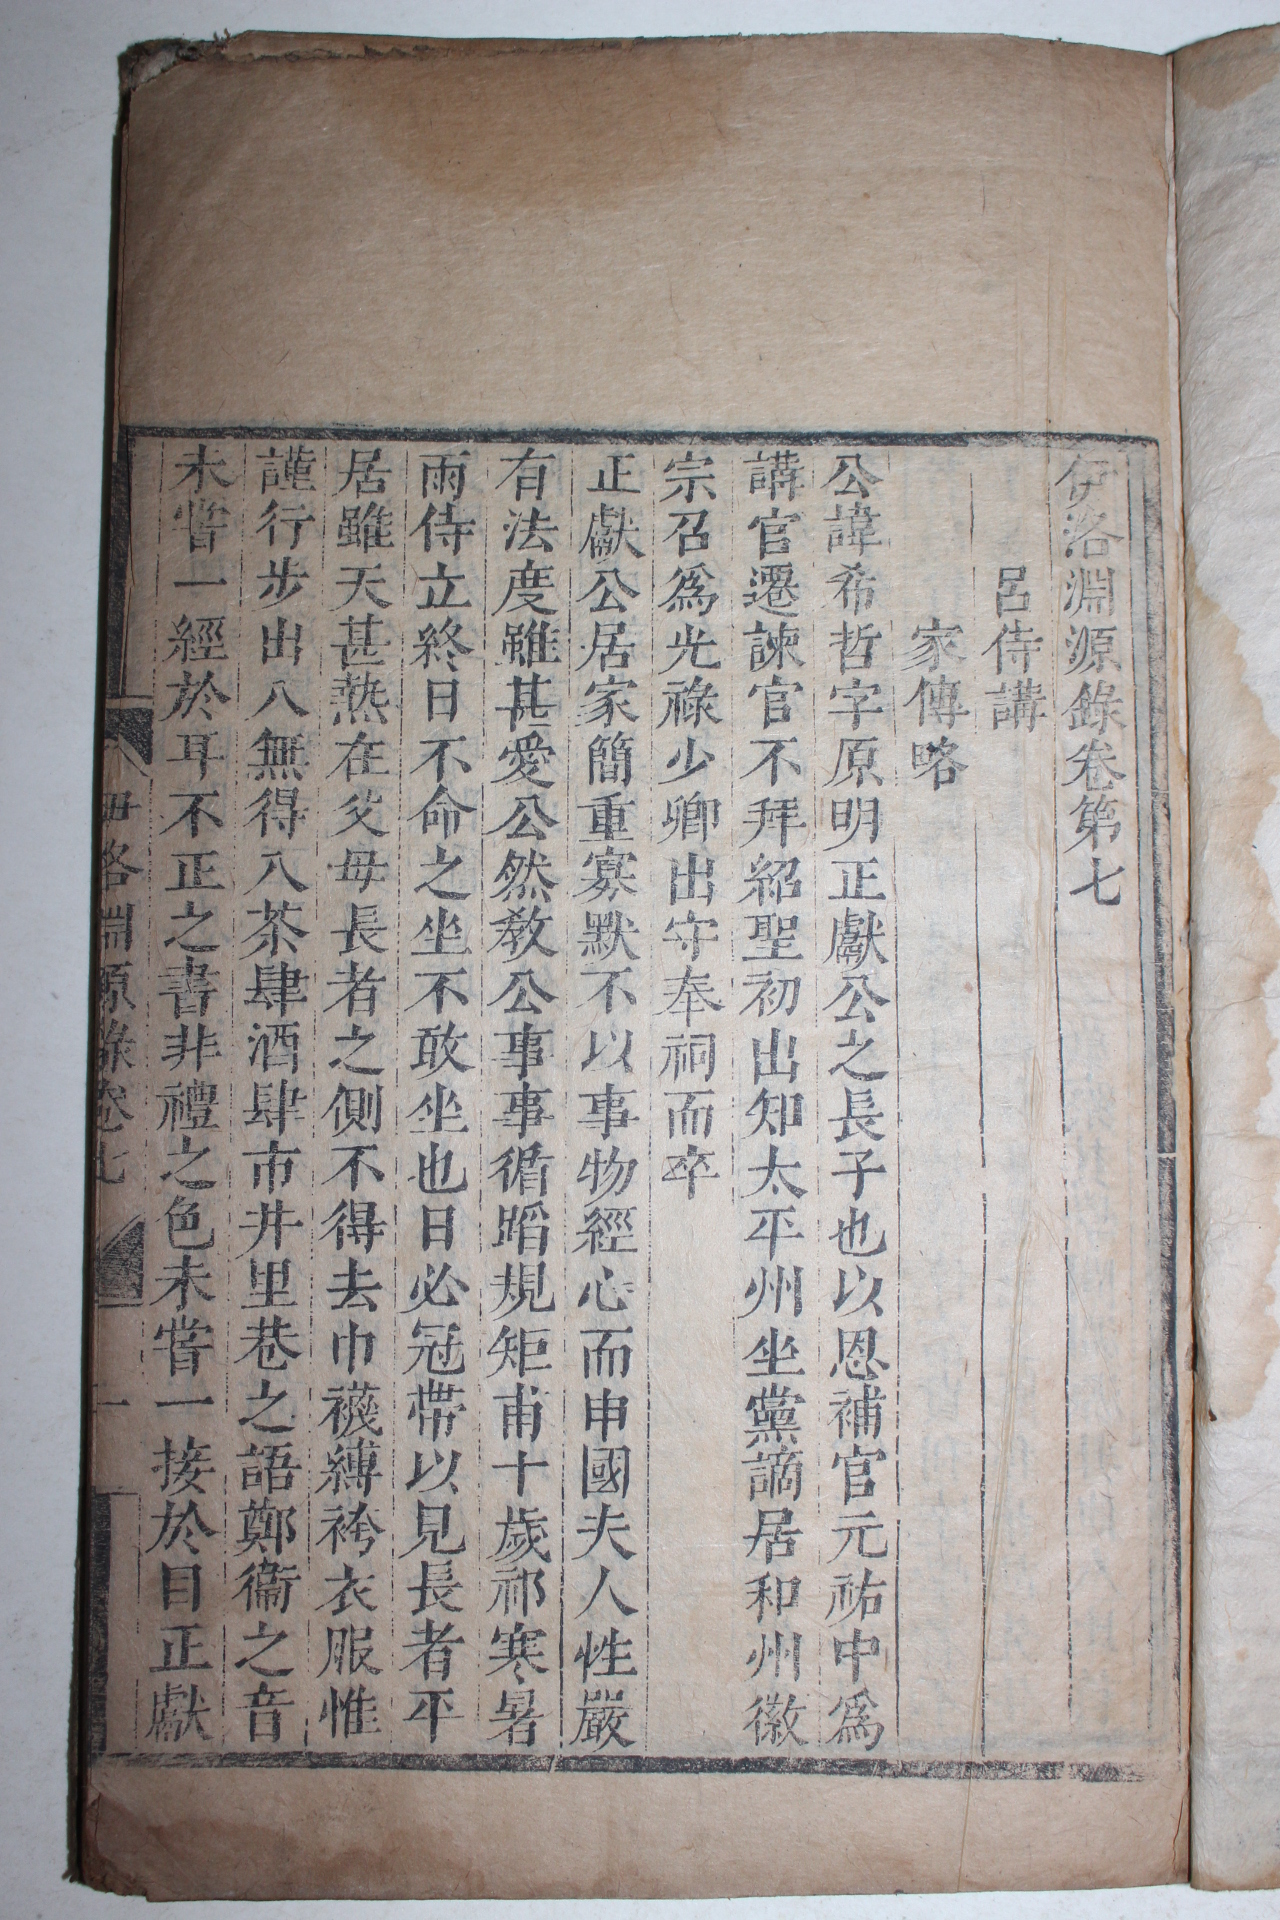 伊洛淵源錄卷第七
呂侍講
家傳略
公諱希哲字原明正獻公之長子也以恩補官元祐中爲
講官遷諫官不拜紹聖初出知太平州坐黨謫居和州徽
宗召爲光祿少卿出守奉祠而卒
正獻公居家簡重寡默不以事物經心而申國夫人性嚴
有法度雖甚愛公然教公事事循蹈規矩甫十歲祁寒暑
雨侍立終日不命之坐不敢坐也日必冠帶以見長者平
居雖天甚熱在父母長者之側不得去巾襪縛袴衣服惟
謹行步出入無得入茶肆酒肆市井里巷之語鄭衞之音
未嘗一經於耳不正之書非禮之色未嘗一接於目正獻
伊洛淵源錄卷七
一